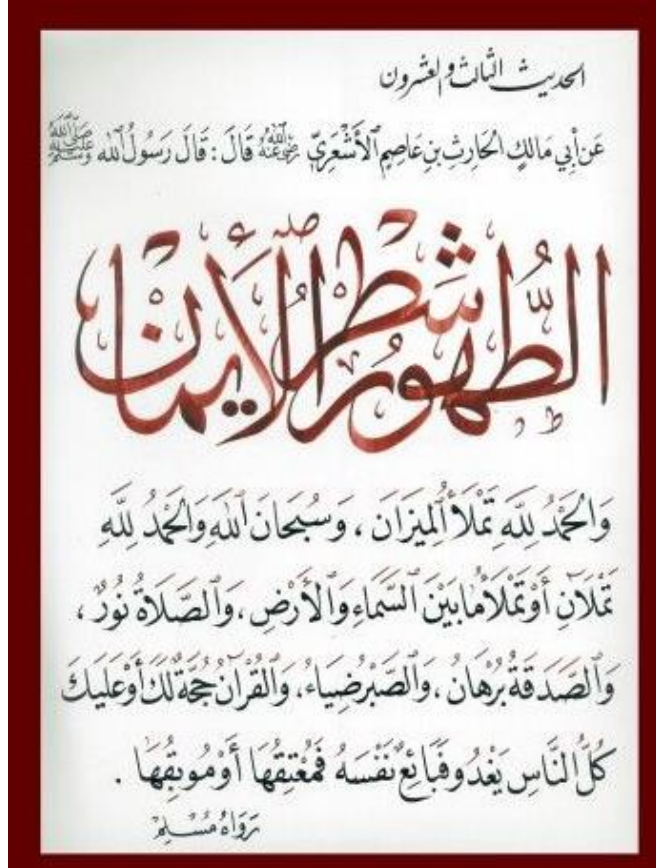 الحديث الثالث والعشرون
عَن أَبِي مَالِكٍ الحَارِثِ بنِ عَاصِمٍ الأَشْعَرِيِّ رضي الله عنه قَالَ : قَالَ رَسُولُ الله صلى الله عليه وسلم
الطُّهُورُ شَطْرُ الْأِيمَانِ
وَالحَمْدُ لِلَّهِ تَمْلَأُ الْمِيزَانَ ، وَسُبْحَانَ اللهِ وَالحَمْدُ لِلَّهِ
تَمْلَآنِ أَوْ تَمْلَأُ مَا بَيْنَ السَّمَاءِ وَالأَرْضِ ، وَالصَّلَاةُ نُورٌ ،
وَالصَّدَقَةُ بُرْهَانٌ ، وَالصَّبْرُ ضِيَاءٌ ، وَالقُرْآنُ حُجَّةٌ لَكَ أَوْ عَلَيكَ
كُلُّ النَّاسِ يَغْدُو فَبَائِعٌ نَفْسَهُ فَمُعْتِقُهَا أَوْ مُوبِقُهَا .
رَوَاهُ مُسْلِمٌ